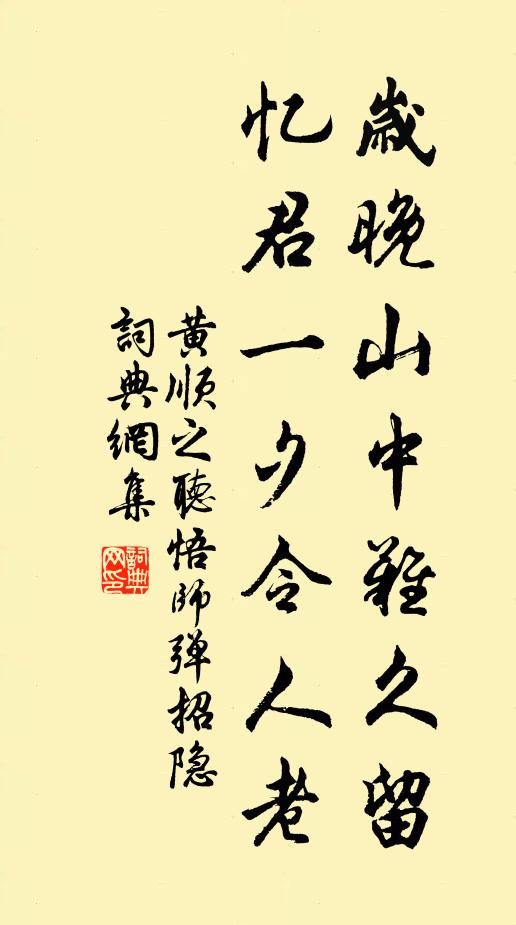 歲晚山中難久留
忆君一夕令人老
黄顺之聽悟师弹招隐
詞典網集
詞典网印